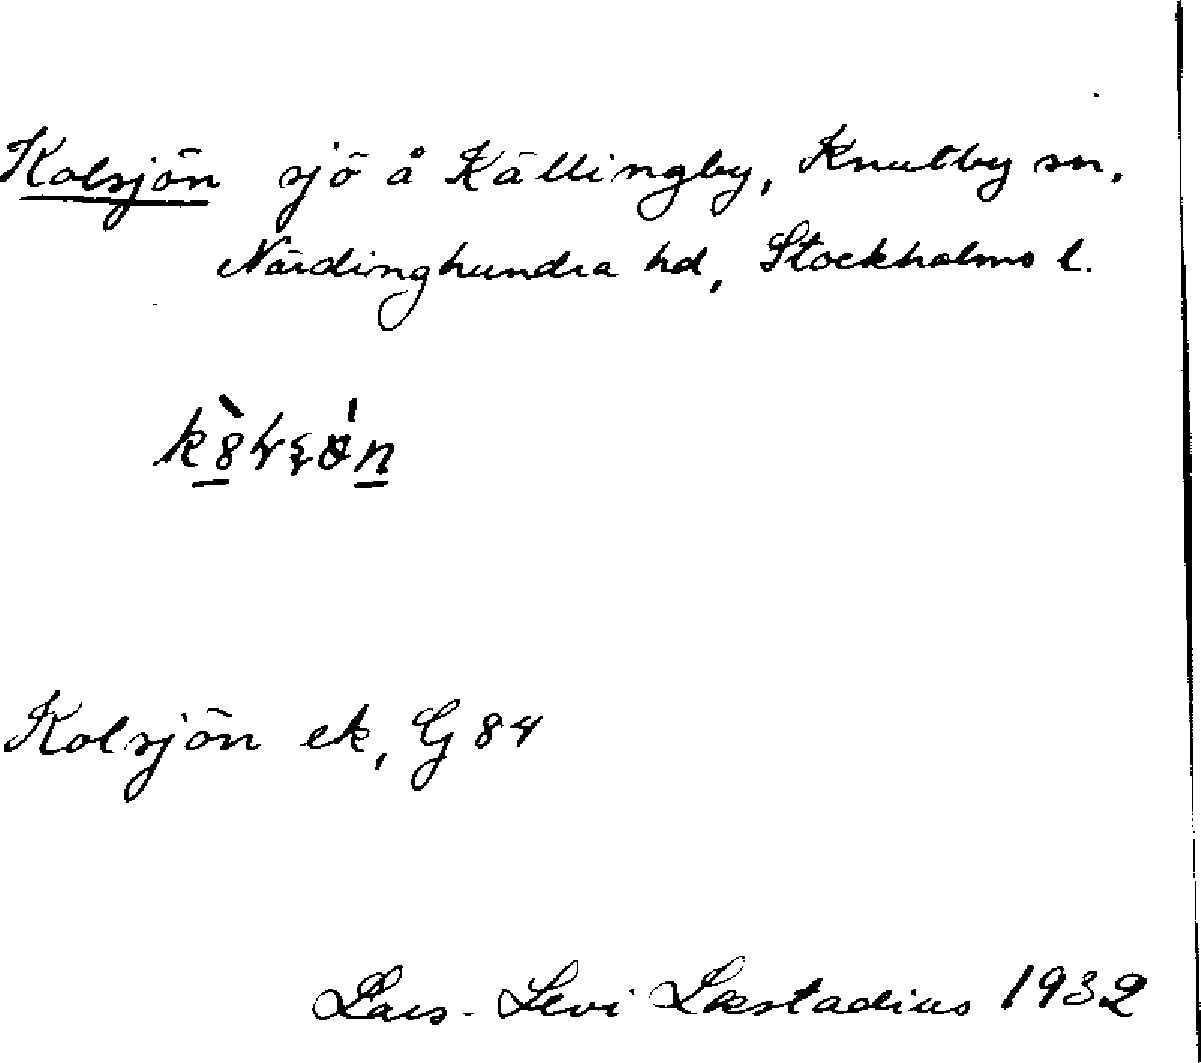 Kolsjön sjö å Källingby, Knutby sn.
Närdinghundra hd, Stockholms l.
Kolsjön ek, G 84
Lars-Levi Læstadius 1932